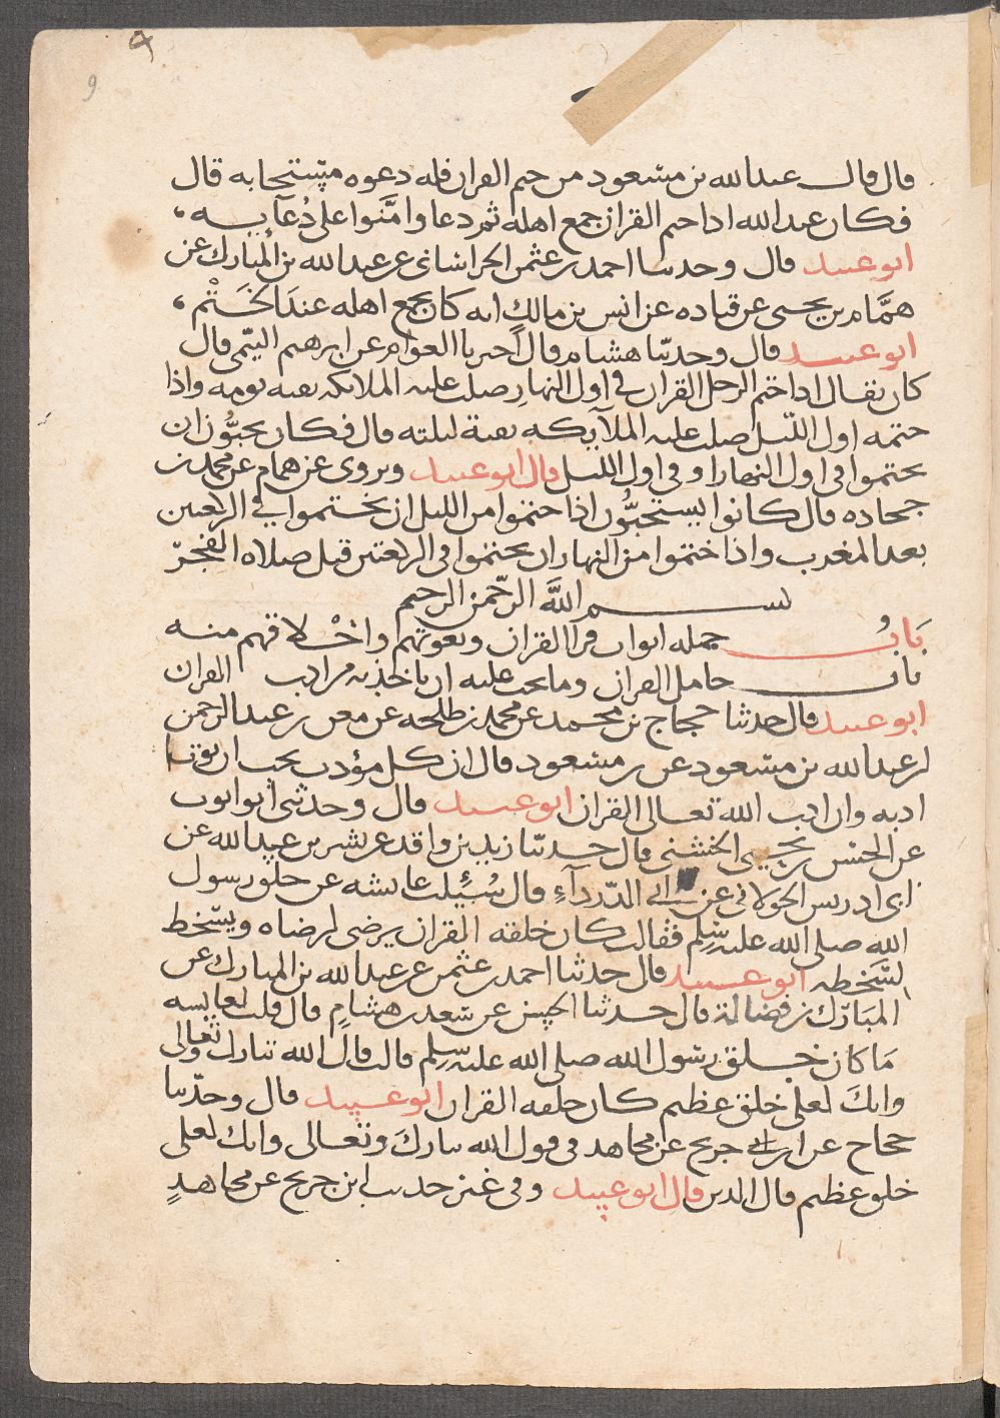 9
قال قال عبد الله بن مسعود من ختم القران فله دعوه مستجابه قال
فكان عبد الله اذا ختم القران جمع اهله ثم دعا وامَّنَوا على دُعآيـه ،
ابو عبيد قال وحدثنا احمد بن عثمن الخراسانى عن عبد الله بن المبارك عن
همَّام بن يحيى عن قتاده عن انس بن مالكٍ انه كان يجمع اهله عند الخَتْم ،
ابو عبيد قال وحدثنا هشام قال اخبرنا العوام عن ابرهيم التيمى قال
كان يقال اذا ختم الرجل القران في اول النهارِ صلت عليه الملايكه بقيه يومه واذا
ختمه اول الليل صلت عليه الملآيكه بقية ليلته قال فكان يحبُّون ان
يختموا فى اول النهار او فى اول الليل قال ابو عبيد ويروى عن همام عن محمد بن
جحاده قال كانوا يستحبُّون اذا ختموا من الليل ان يختموا في الركعتين
بعد المغرب واذا ختموا من النهار ان يختموا فى الركعتين قبل صلاه الفجر
بسم الله الرحمن الرحيم
بَابُ جمله ابواب قرا القران ونعوتهم واخْلاقهم منه
باب حامل القران وما يجب عليه ان ياخذ به من ادب القران
ابو عبيد قال حدثنا حجاج بن محمد عن محمد بن طلحه عن معن بن عبد الرحمن
بن عبد الله بن مسعود عن بن مسعود قال ان كل مؤدب يحب ان يوتى
ادبه وان ادب الله تعالى القران ابو عبيد قال وحدثنى ابو ايوب
عن الحسن بن يحيى الخشنى قال حدثنا زيد بن واقد عن بشر بن عبيد الله عن
ابى ادريس الخولانى عن ابي الدّرداءِ قال سُئِلت عايشه عن خلق رسول
الله صلى الله عليه وسلم فقالت كان خلقه القران يرضى لرضاه ويسخط
لسخطه ابو عبيد قال حدثنا احمد بن عثمن عن عبد الله بن المبارك عن
المبارك بن فضالة قال حدثنا الحسن عن سعد بن هشامٍ قال قلت لعايشه
مَا كان خلق رسول الله صلى الله عليه وسلم قالت قال الله تبارك وتعالى
وانكَ لعلى خلق عظيم كان خلقه القران ابو عبيد قال وحدّثنا
حجاج عن ابن جريج عن مجاهد فى قول الله تبارك وتعالى وانك لعلى
خلق عظيم قال الدين قال ابو عبيد وفى غير حديث ابن جريج عن مجاهدٍ